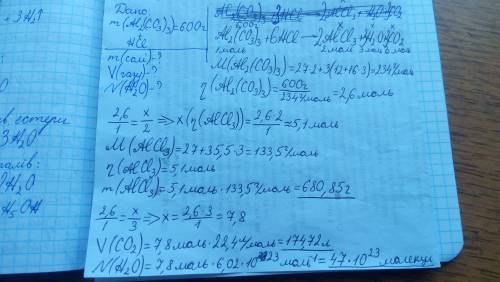 + 3H₂↑
в. естери
3H₂O
галів:
H₂O
H₅OH
Дано:
m(Al₂(CO₃)₃)=600г
HCl
m(солі)-?
V(газу)-?
N(H₂O)-?
600г
Al₂(CO₃)₃+6HCl→2AlCl₃+3H₂O+3CO₂
1моль 2моль 3моль
M(Al₂(CO₃)₃)=27·2+3(12+16·3)=234г/моль
η(Al₂(CO₃)₃)=600г/234г/моль=2,6моль
2,6/1=x/2 ⇒ x(η(AlCl₃))=2,6·2/1≈5,1моль
M(AlCl₃)=27+35,5·3=133,5г/моль
η(AlCl₃)=5,1моль
m(AlCl₃)=5,1моль·133,5г/моль=680,85г
2,6/1=x/3 ⇒ x=2,6·3/1=7,8
V(CO₂)=7,8моль·22,4л/моль=174,72л
N(H₂O)=7,8моль·6,02·10²³моль⁻¹=47·10²³молекул